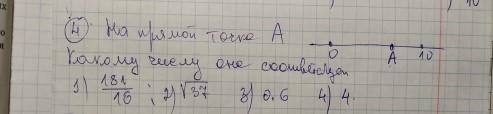 4. На прямой точка А
0 А 10
Какому числу она соответ
1) 181/16 ; 2) √37 3) 0.6 4) 4.